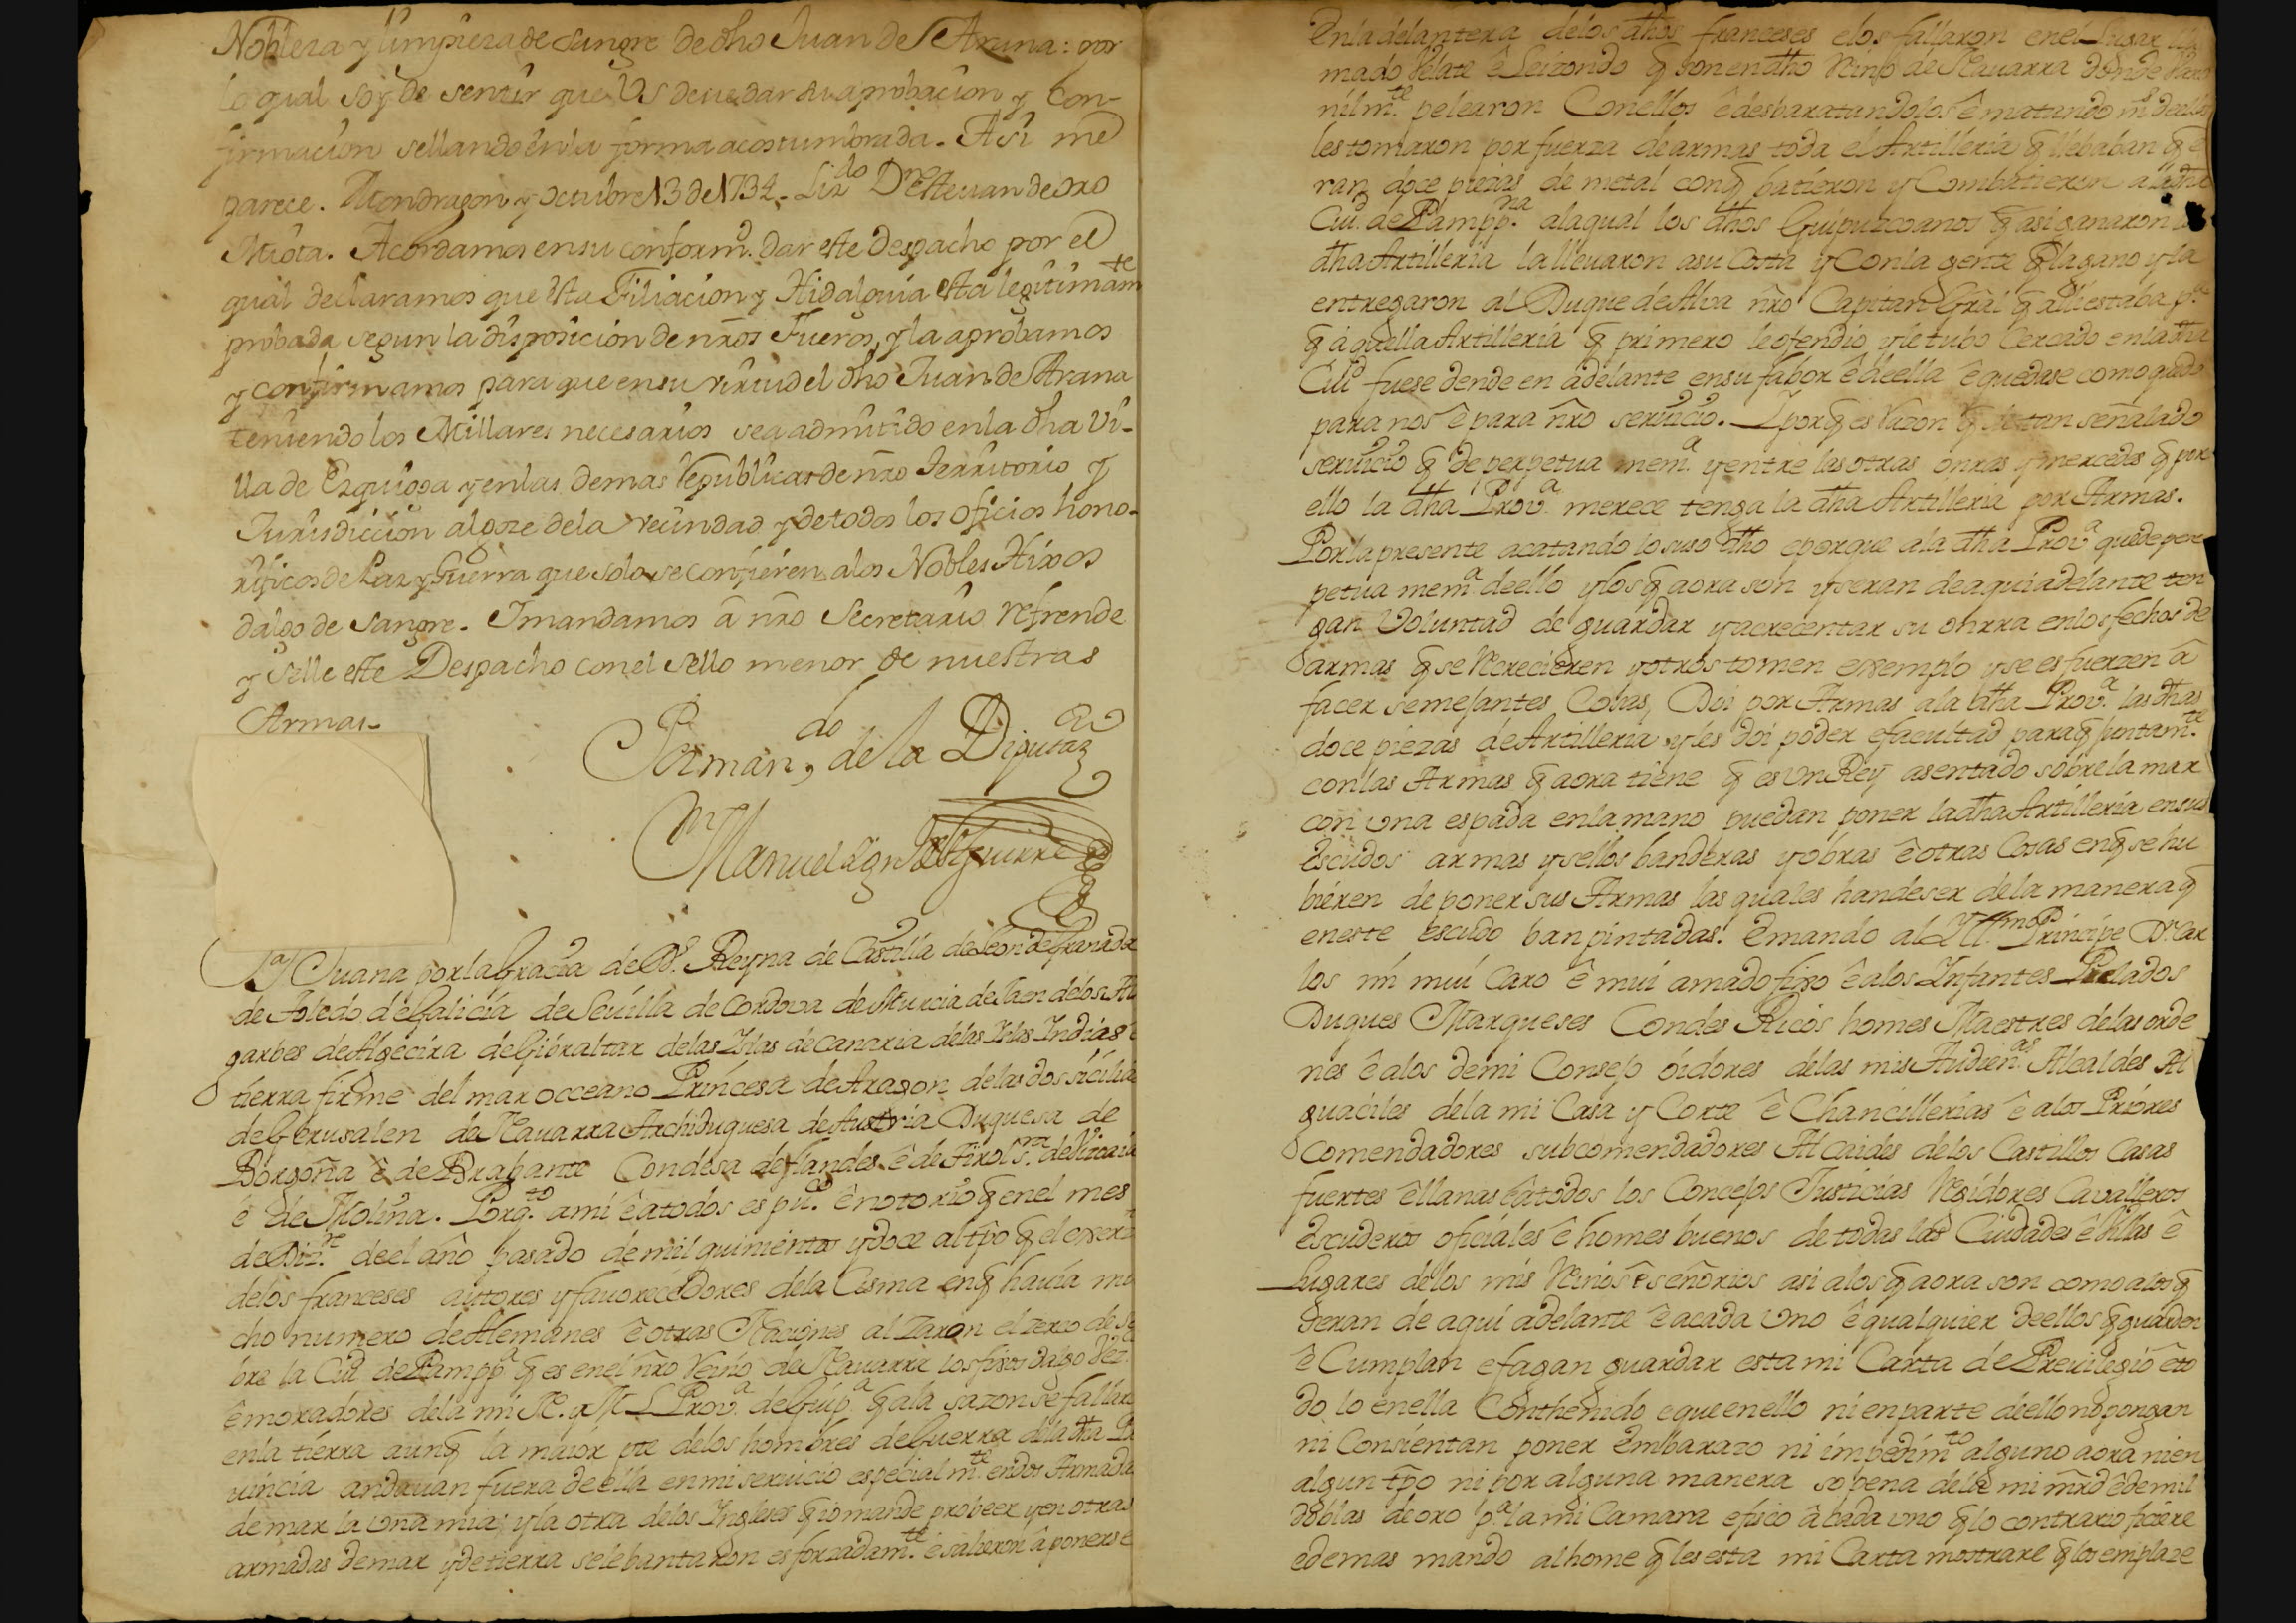 Nobleza y limpieza de sangre de dho Juan de Arana: por
lo qual soy de sentir que VS deue dar su aprobacion y Con-
firmacion sellando en la forma acostumbrada. Asi me
parece. Mondragon y Octubre 13 de 1734. Liz.do Dn Esteuan de Oro
Miota. Acordamos en su conform.d dar este Despacho por el
qual declaramos que esta Filiacion y Hidalguia esta legitimam.te
probada segun la disposicion de nros Fueros, y la aprobamos
y confirmamos para que en su virtud el dho Juan de Arana
teniendo los Millares necesarios sea admitido en la dha Vi-
lla de Ezquioga y en las demas Republicas de nro Territorio y
Jurisdiccion al goze de la vecindad y de todos los oficios hono-
rificos de Paz y Guerra que solo se confieren a los Nobles Hixos
dalgo de sangre. I mandamos a nro Secretario refrende
y selle este Despacho con el sello menor de nuestras
Armas.
de la Diputaz
Manuel Ign.o de Aguirre
D.a Juana por la Gracia de D.s Reyna de Castilla de Leon de Granada
de Toledo de Galicia de Seuilla de Cordova de Murcia de Jaen de los Al
garbes de Algecira de Gibraltar de las Islas de Canaria de las Islas Indias e
tierra firme del mar occeano Princesa de Aragon de las dos sicilias
de Gerusalen de Nauarra Archiduquesa de Austria Duquesa de
Borgoña ê de Brabante Condesa de flandes ê de Tirol s.ra de Vizcaia
ê de Molina. Porq.to a mi ê a todos es pu.co ê notorio q̃ en el mes
de Diz.re de el año pasado de mil quinientos y doce al tp̃o q̃ el exerz.to
de los franceses autores y fauorecedores de la Cisma en q̃ hauia mu
cho numero de Alemanes ê otras Naciones alzaron el zerco de so
bre la Ciud de Pampp.a q̃ es en el nr̃o Reino de Nauarra los fixos dalgo vez.s
ê moradores de la mi N. y M L Prov.a de Guip.a q̃ a la sazon se fallaro
en la tierra aunq̃ la maior pte de los hombres de Guerra de la dha Pro
uincia andauan fuera de ella en mi seruicio especialm.te en dos Armadas
de mar la una mia, y la otra de los Ingleses q̃ io mande probeer y en otras
armadas de mar y de tierra se lebantaron esforzadam.te ê salieron â ponerse
En la delantera de los dhos franceses e los fallaron en el Lugar lla
mado Velate ê Leizondo q̃ son en dho Reino de Nauarra donde Varo
nilm.te pelearon Con ellos ê desbaratandolos ê matando m.s de ellos
les tomaron por fuerza de armas toda el Artilleria q̃ llebaban q̃ e
ran doce piezas de metal con q̃ batieron y Combatieron a la dha
Ciu.d de Pampp.na a la qual los dhos Guipuzcoanos q̃ asi ganaron la
dha Artilleria la lleuaron a su Costa y Con la gente q̃ la gano y la
entregaron al Duque de Alva nr̃o Capitan Gral q̃ alli estaba p.a
q̃ aquella Artilleria q̃ primero le ofendio y le tubo Cercado en la dha
Ciud fuese dende en adelante en su fabor ê de ella ê quedase como quedo
para nos ê para nr̃o seruicio. I por q̃ es Razon q̃ de tan señalado
seruicio q̃ de perpetua mem.a y entre las otras onras y mercedes q̃ por
ello la dha Prov.a merece tenga la dha Artilleria por Armas.
Por la presente acatando lo suso dho e porque a la dha Prov.a quede per
petua mem.a de ello y los q̃ aora son y seran de aqui adelante ten
gan Voluntad de guardar y acrecentar su onrra en los fechos de
armas q̃ se recrecieren y otros tomen exemplo y se esfuerzen â
facer semejantes Cosas, Doi por Armas a la dha Prov.a las dhas
doce piezas de Artilleria y les doi poder e facultad para q̃ juntam.te
con las Armas q̃ aora tiene q̃ es Un Rey asentado sobre la mar
con una espada en la mano puedan poner la dha Artilleria en sus
Escudos armas y sellos banderas y obras ê otras Cosas en q̃ se hu
bieren de poner sus Armas las quales han de ser de la manera q̃
en este escudo ban pintadas. E mando al Yll.mo Principe D.n Car
los mi mui Caro ê mui amado fixo ê a los Infantes Prelados
Duques Marqueses Condes Ricos homes Maestres de las orde
nes ê a los de mi Consejo oidores de las mis Audien.as Alcaldes Al
guaciles de la mi Casa y Corte ê Chancillerias ê a los Priores
Comendadores subcomendadores Alcaides de los Castillos Casas
fuertes ê llanas ê a todos los Concejos Justicias Regidores Cavalleros
escuderos oficiales ê homes buenos de todas las Ciudades ê Villas ê
Lugares de los mis Reinos ê señorios asi a los q̃ aora son como a los q̃
seran de aqui adelante ê a cada uno ê qualquier de ellos q̃ guarden
ê Cumplan e fagan guardar esta mi Carta de Preuilegio ê to
do lo en ella Conthenido e que en ello ni en parte de ello no pongan
ni Consientan poner embarazo ni impedim.to alguno aora ni en
algun tp̃o ni por alguna manera so pena de la mi mr̃d ê de mil
doblas de oro p.a la mi Camara e fisco â cada uno q̃ lo contrario ficiere
e demas mando al home q̃ les esta mi Carta mostrare q̃ los emplaze